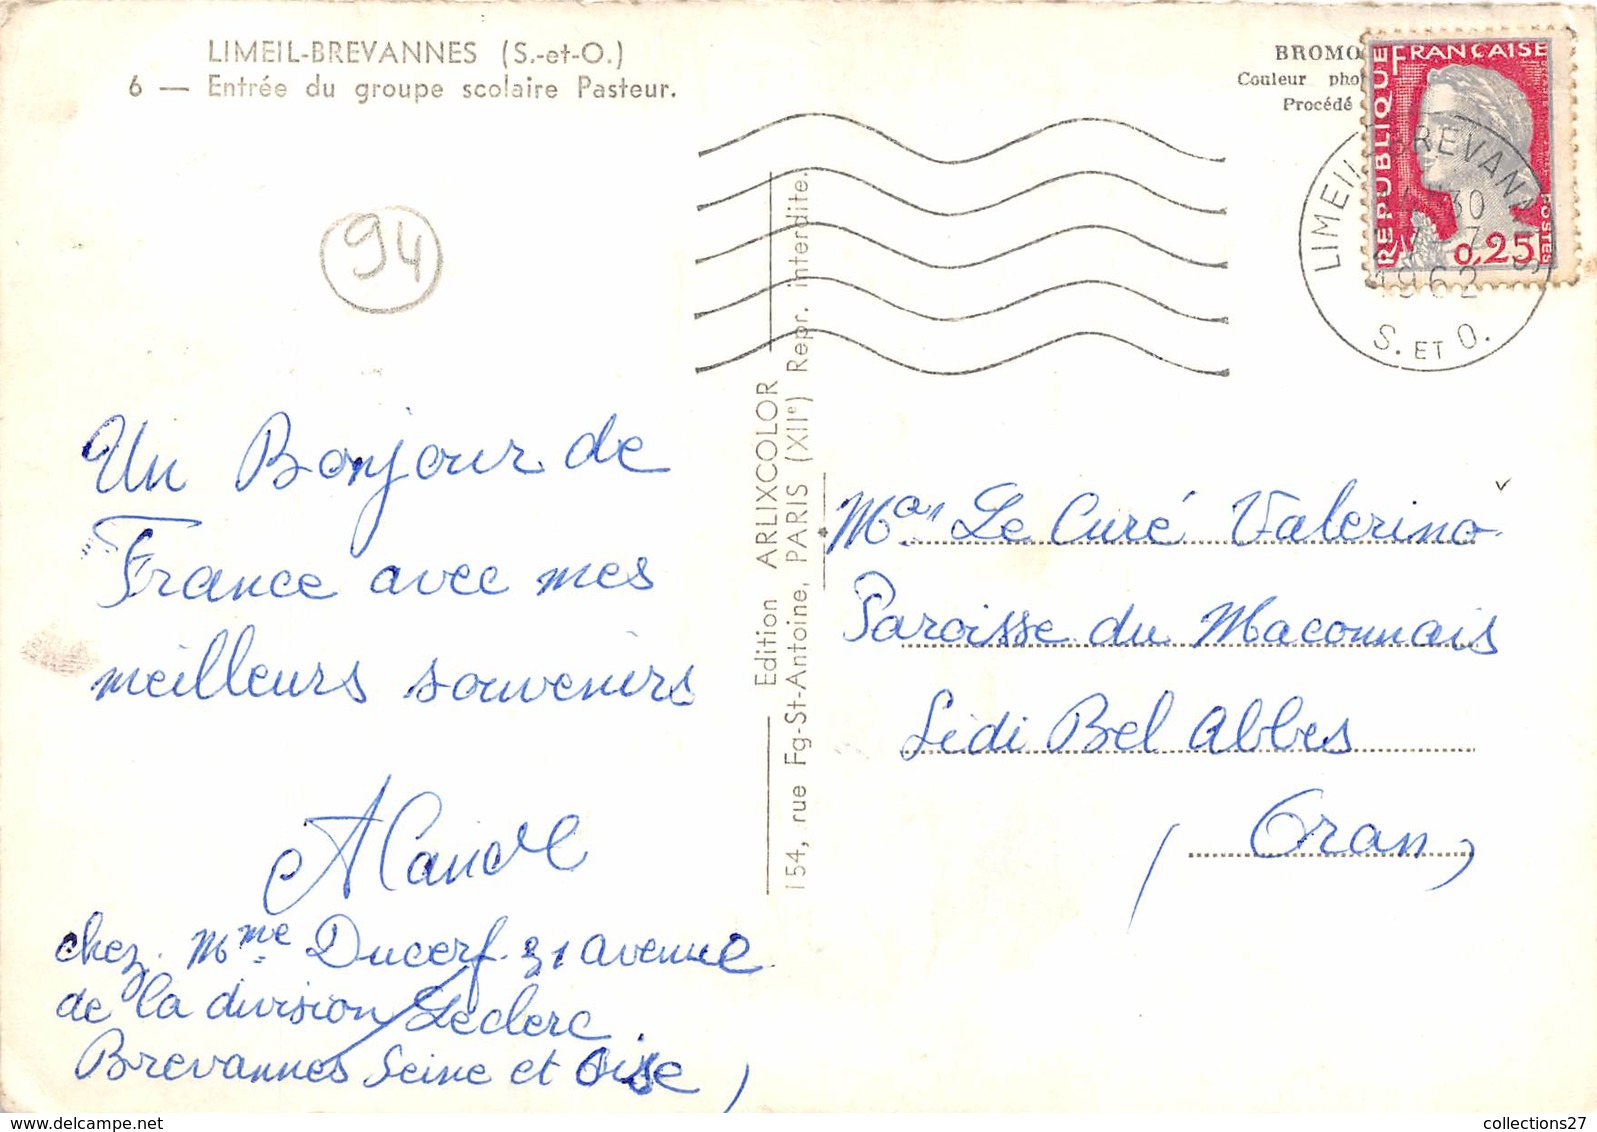 LIMEIL-BREVANNES (S.-et-O.)
6 — Entrée du groupe scolaire Pasteur.
94
Un Bonjour de
France avec mes
meilleurs souvenirs
chez. Mme Ducerf 31 avenue
de la division Leclerc
Brevannes Seine et Oise
Edition ARLIXCOLOR
154, rue Fg-St-Antoine, PARIS (XIIe) Repr. interdite.
BROMO
Couleur pho
Procédé
REPUBLIQUE FRANÇAISE
POSTES
0,25
LIMEIL BREVANNES
30
1962
S. ET O.
Le Curé Valerino
Paroisse du Maconnais
Sidi Bel Abbes
(Oran)
collections27